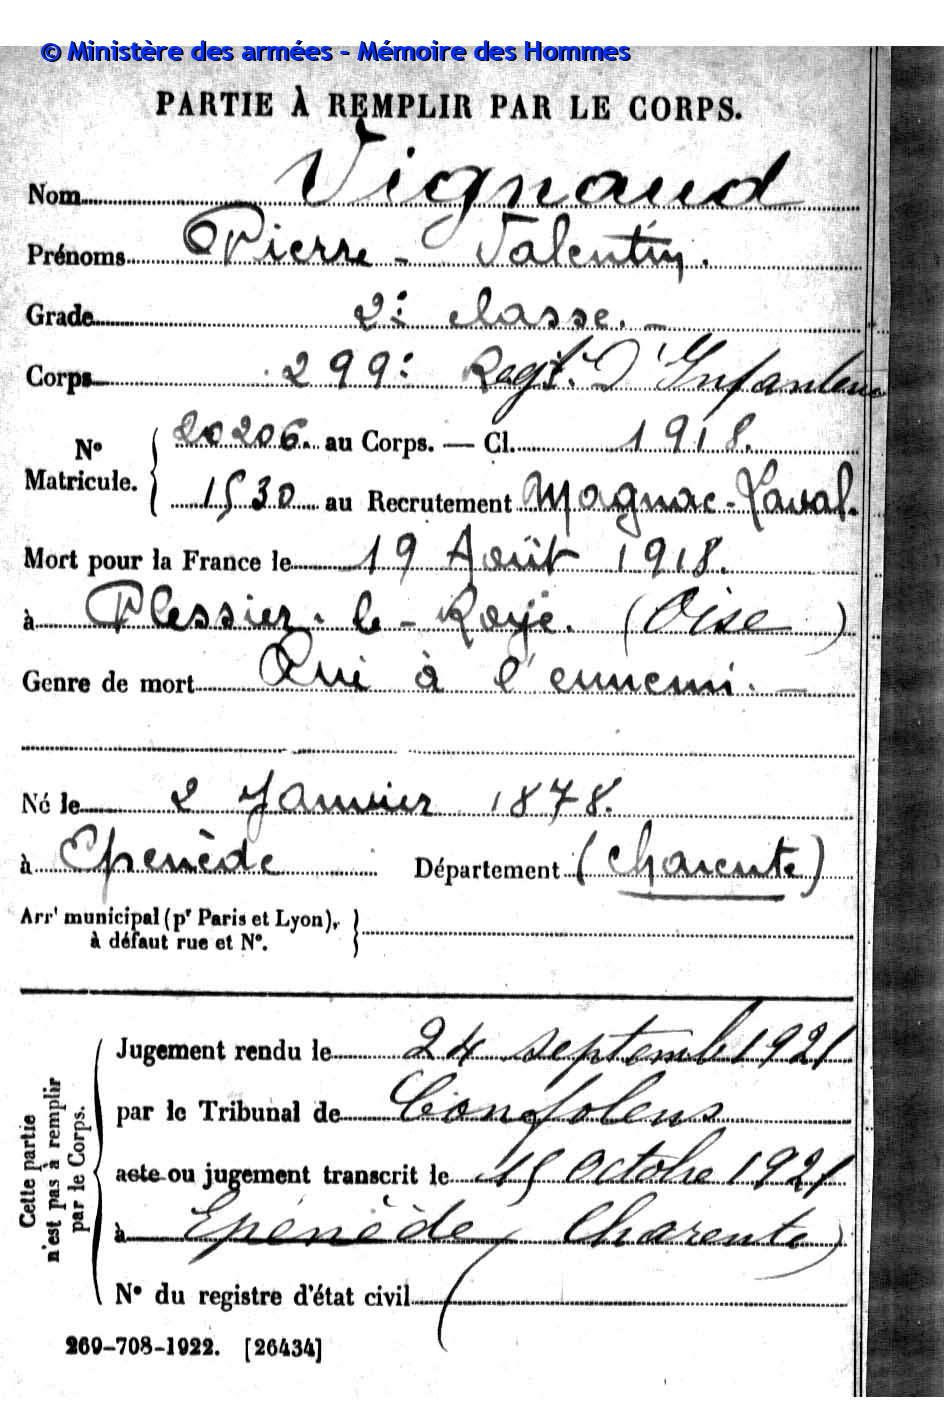 © Ministère des armées - Mémoire des Hommes
PARTIE À REMPLIR PAR LE CORPS.
Nom Vignaud
Prénoms Pierre - Valentin.
Grade 2e classe. -
Corps 299e Regt. D'Infanterie
N° Matricule. { 20206. au Corps. — Cl. 1918.
1530 au Recrutement Magnac-Laval.
Mort pour la France le 19 Août 1918.
à Plessier-le-Roye. (Oise)
Genre de mort Tué à l'ennemi. -
Né le 2 Janvier 1878.
à Epenède Département (Charente)
Arrt municipal (pr Paris et Lyon), }
à défaut rue et N°.
Cette partie
n'est pas à remplir
par le Corps.
Jugement rendu le 24 septembre 1921
par le Tribunal de Confolens
acte ou jugement transcrit le 15 Octobre 1921
à Epenède (Charente)
N° du registre d'état civil
260-708-1922. [26434]